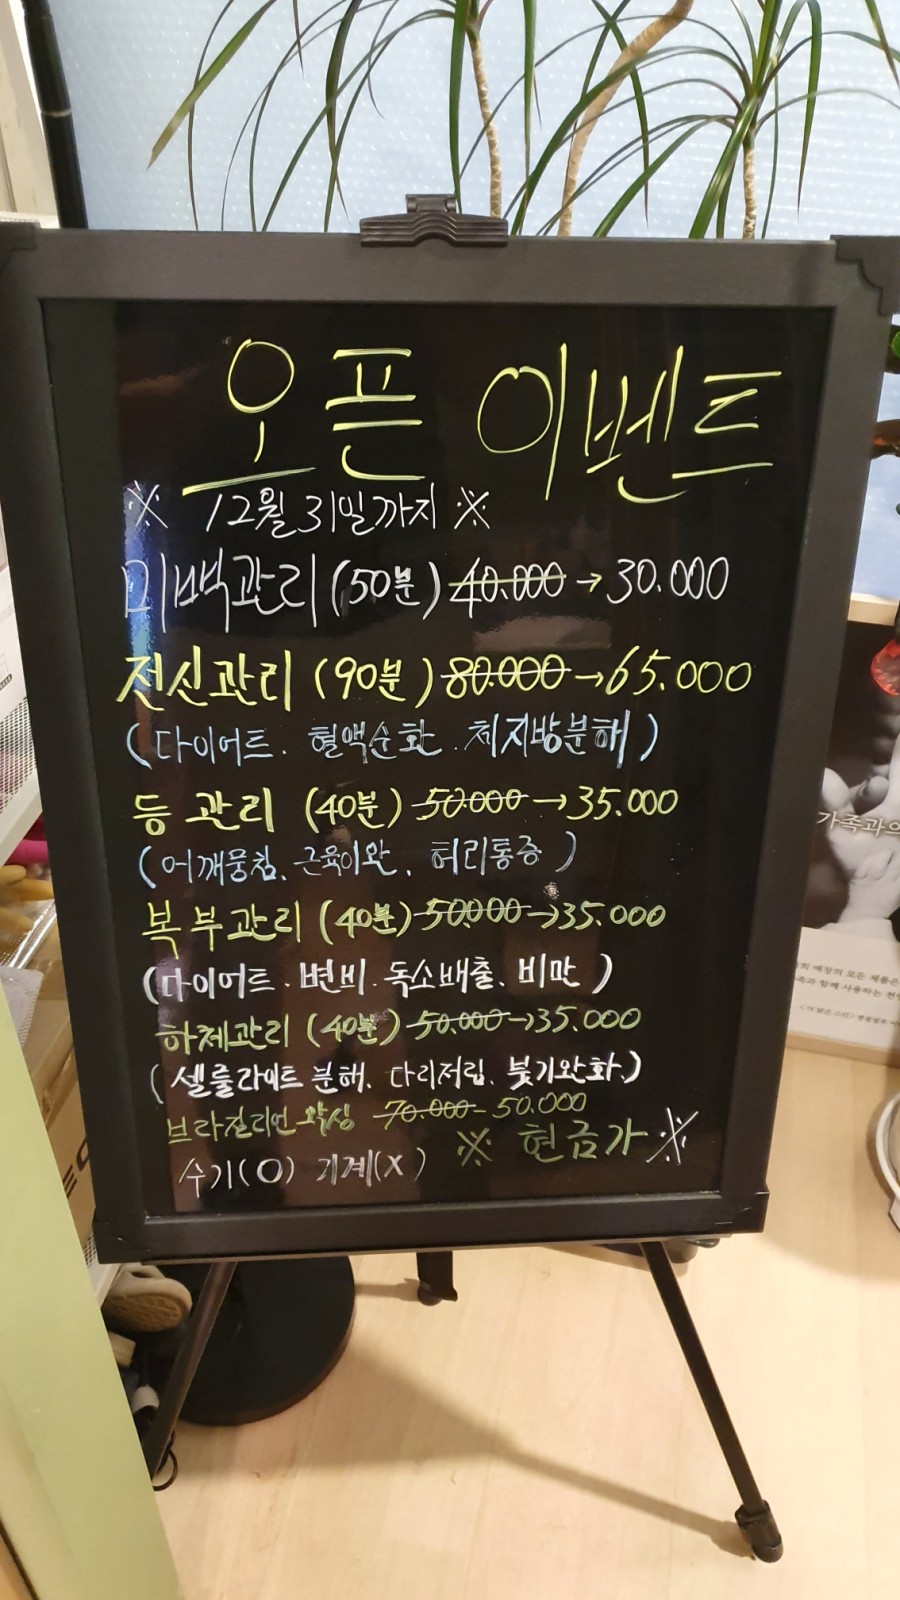 오픈 이벤트
※ 12월 31일까지 ※
미백관리 (50분) 40.000 → 30.000
전신관리 (90분) 80.000 → 65.000
(다이어트. 혈액순환. 체지방분해)
등 관리 (40분) 50.000 → 35.000
(어깨뭉침. 근육이완. 허리통증)
복부관리 (40분) 50.000 → 35.000
(다이어트. 변비. 독소배출. 비만)
하체관리 (40분) 50.000 → 35.000
(셀룰라이트 분해. 다리저림. 붓기완화.)
브라질리언 왁싱 70.000 - 50.000
※ 현금가 ※
수기(O) 기계(X)
가족과의
매장의 모든 제품은
함께 사용하는